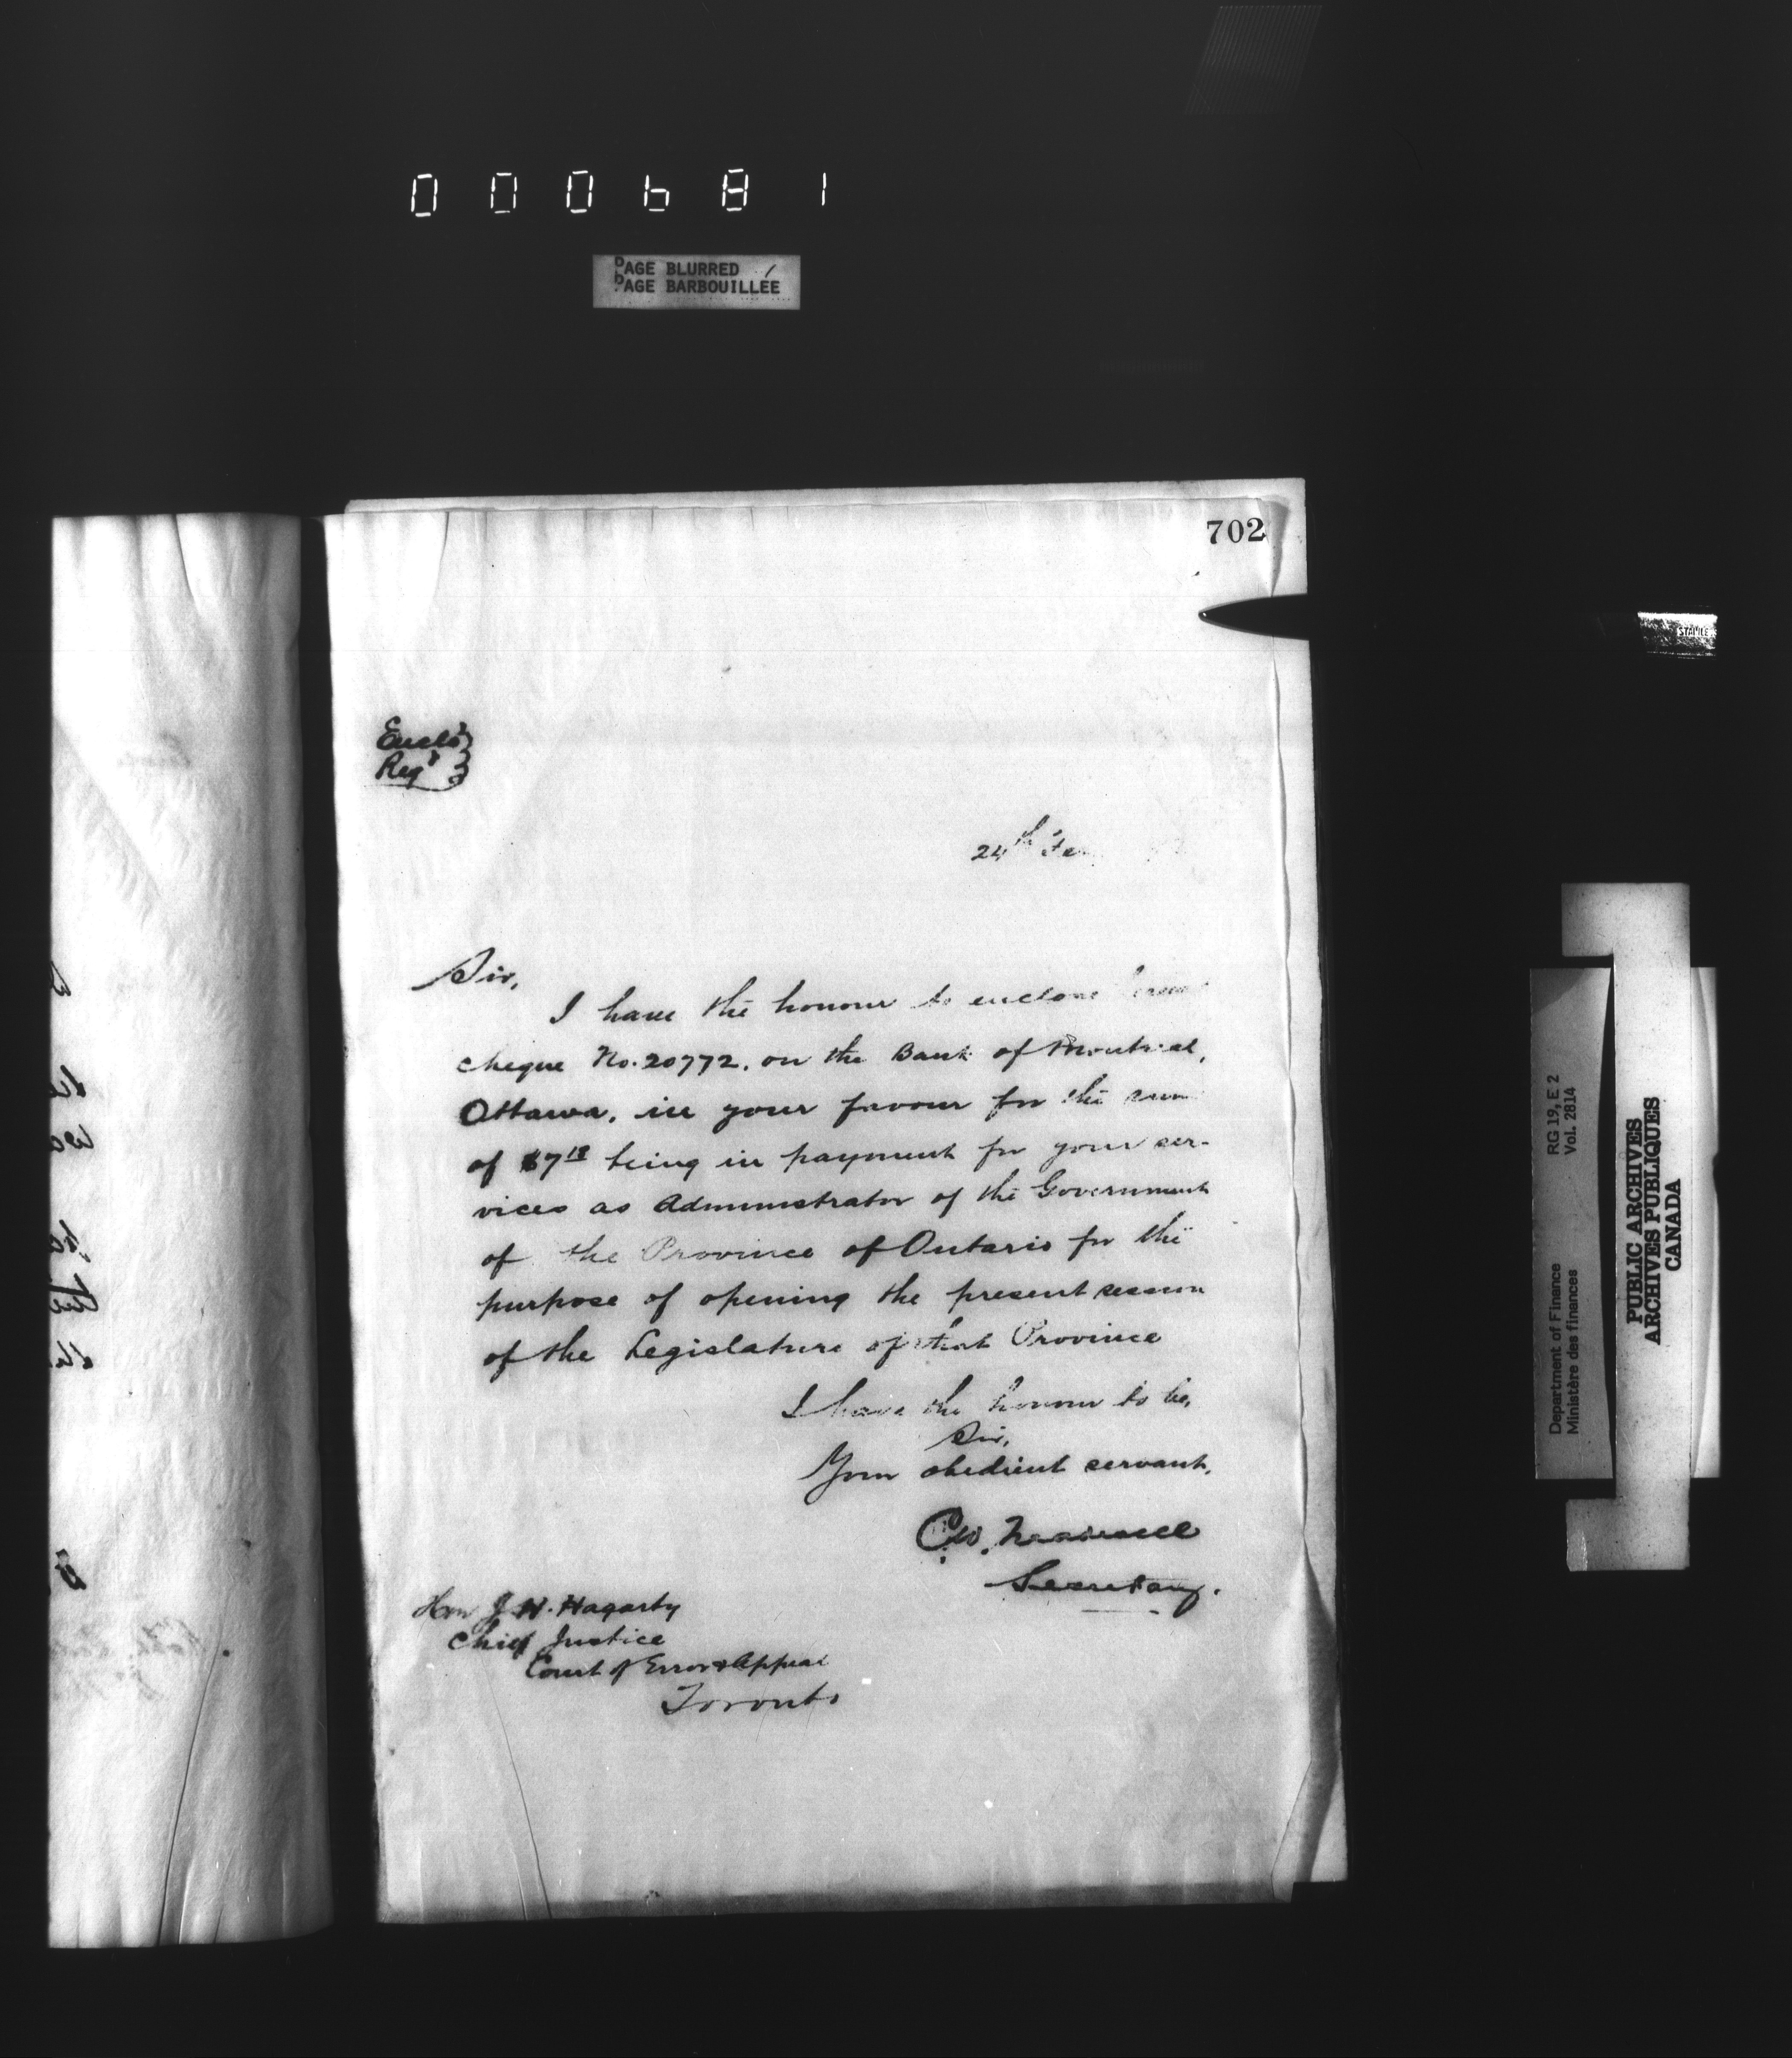 000681
PAGE BLURRED
PAGE BARBOUILLÉE
702
Enclo
Regd
24th Fe
Sir,
I have the honour to enclose
cheque No. 20772. on the Bank of Montreal,
Ottawa, in your favour for the sum
of $7 18 being in payment for your ser-
vices as Administrator of the Government
of the Province of Ontario for the
purpose of opening the present session
of the Legislature of that Province
I have the honour to be,
Sir,
Your obedient servant,
Secretary.
Hon J. H. Hagarty
Chief Justice
Court of Error & Appeal
Toronto
STAPLE
RG 19, E 2
Vol. 2814
Department of Finance
Ministère des finances
PUBLIC ARCHIVES
ARCHIVES PUBLIQUES
CANADA